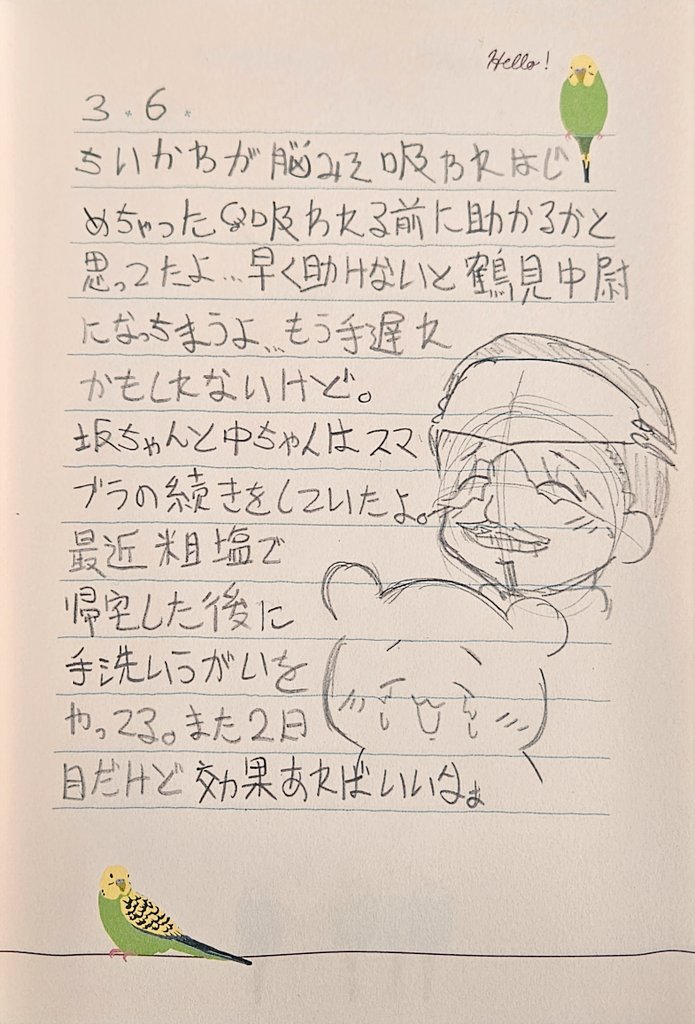 Hello!
3.6.
ちいかわが脳みそ吸われはじ
めちゃった吸われる前に助かるかと
思ってたよ...早く助けないと鶴見中尉
になっちまうよ...もう手遅れ
かもしれないけど。
坂ちゃんと中ちゃんはスマ
ブラの続きをしていたよ。
最近粗塩で
帰宅した後に
手洗いうがいを
やってる。また2日
目だけど効果あればいいなぁ